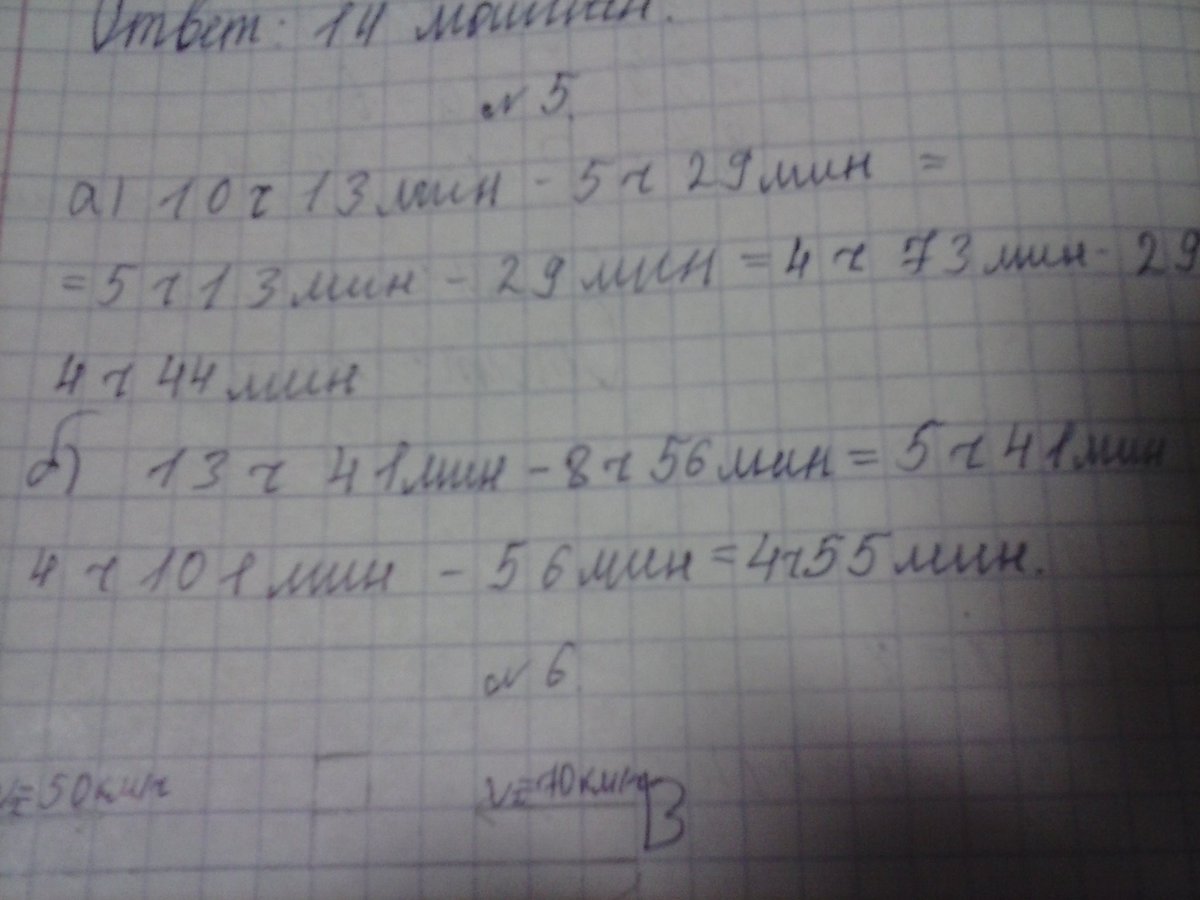 Ответ: 14 машин.
№ 5.
а) 10 ч 13 мин - 5 ч 29 мин =
= 5 ч 13 мин - 29 мин = 4 ч 73 мин - 29
4 ч 44 мин
б) 13 ч 41 мин - 8 ч 56 мин = 5 ч 41 мин
4 ч 101 мин - 56 мин = 4ч55 мин.
№ 6.
= 50 км/ч
В